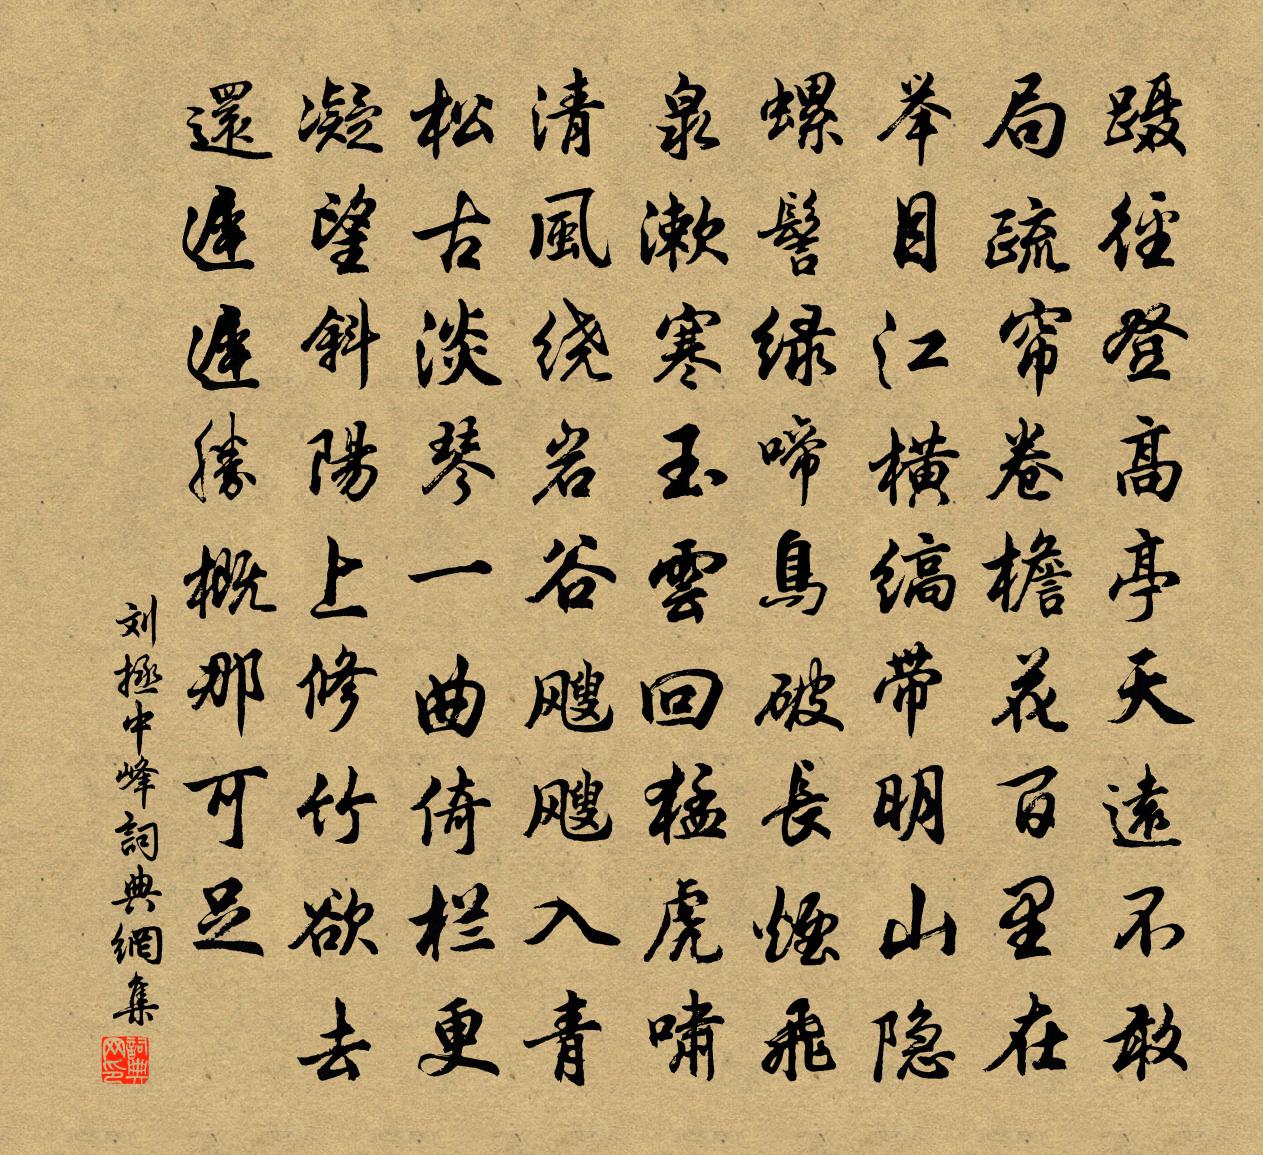 蹑径登高亭天遠不敢
局疏帘卷檐花百里在
举目江横缟带明山隐
螺髻绿啼鳥破長煙飛
泉漱寒玉雲回猛虎啸
清風绕岩谷飕飕入青
松古淡琴一曲倚栏更
凝望斜陽上修竹欲去
還遲遲勝概那可足
刘拯中峰詞典網集